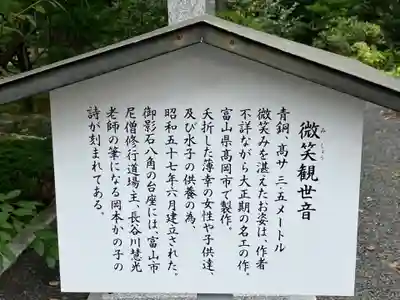 微笑観世音
みしょう
青銅、高サ三・五メートル
微笑みを湛えたお姿は、作者
不詳ながら大正期の名工の作。
富山県高岡市で製作。
夭折した薄幸の女性や子供達、
及び水子の供養の為、
昭和五十七年六月建立された。
御影石八角の台座には、富山市
尼僧修行道場主、長谷川慧光
老師の筆になる岡本かの子の
詩が刻まれてある。